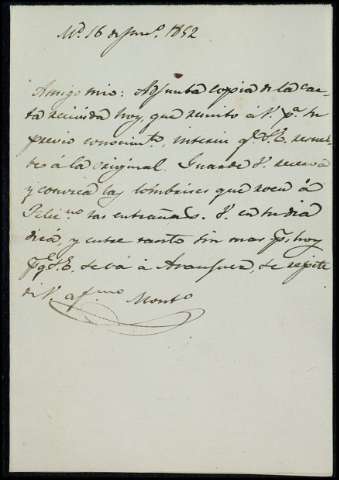 Md. 16 de jun.º 1852
Amigo mio: Adjunta copia de la car-
ta recibida hoy, que remito á V. p.ª su
previo conocimto, interin q.e S.E. remite
á la original. Guarde V. reserva
y conozca las lombrices que roen á
las entrañas. V. en su dia
dirá, y entre tanto sin mas p.r hoy
q.e S.E. se vá á Aranjuez, se repite
de V. af.mo Mont.o